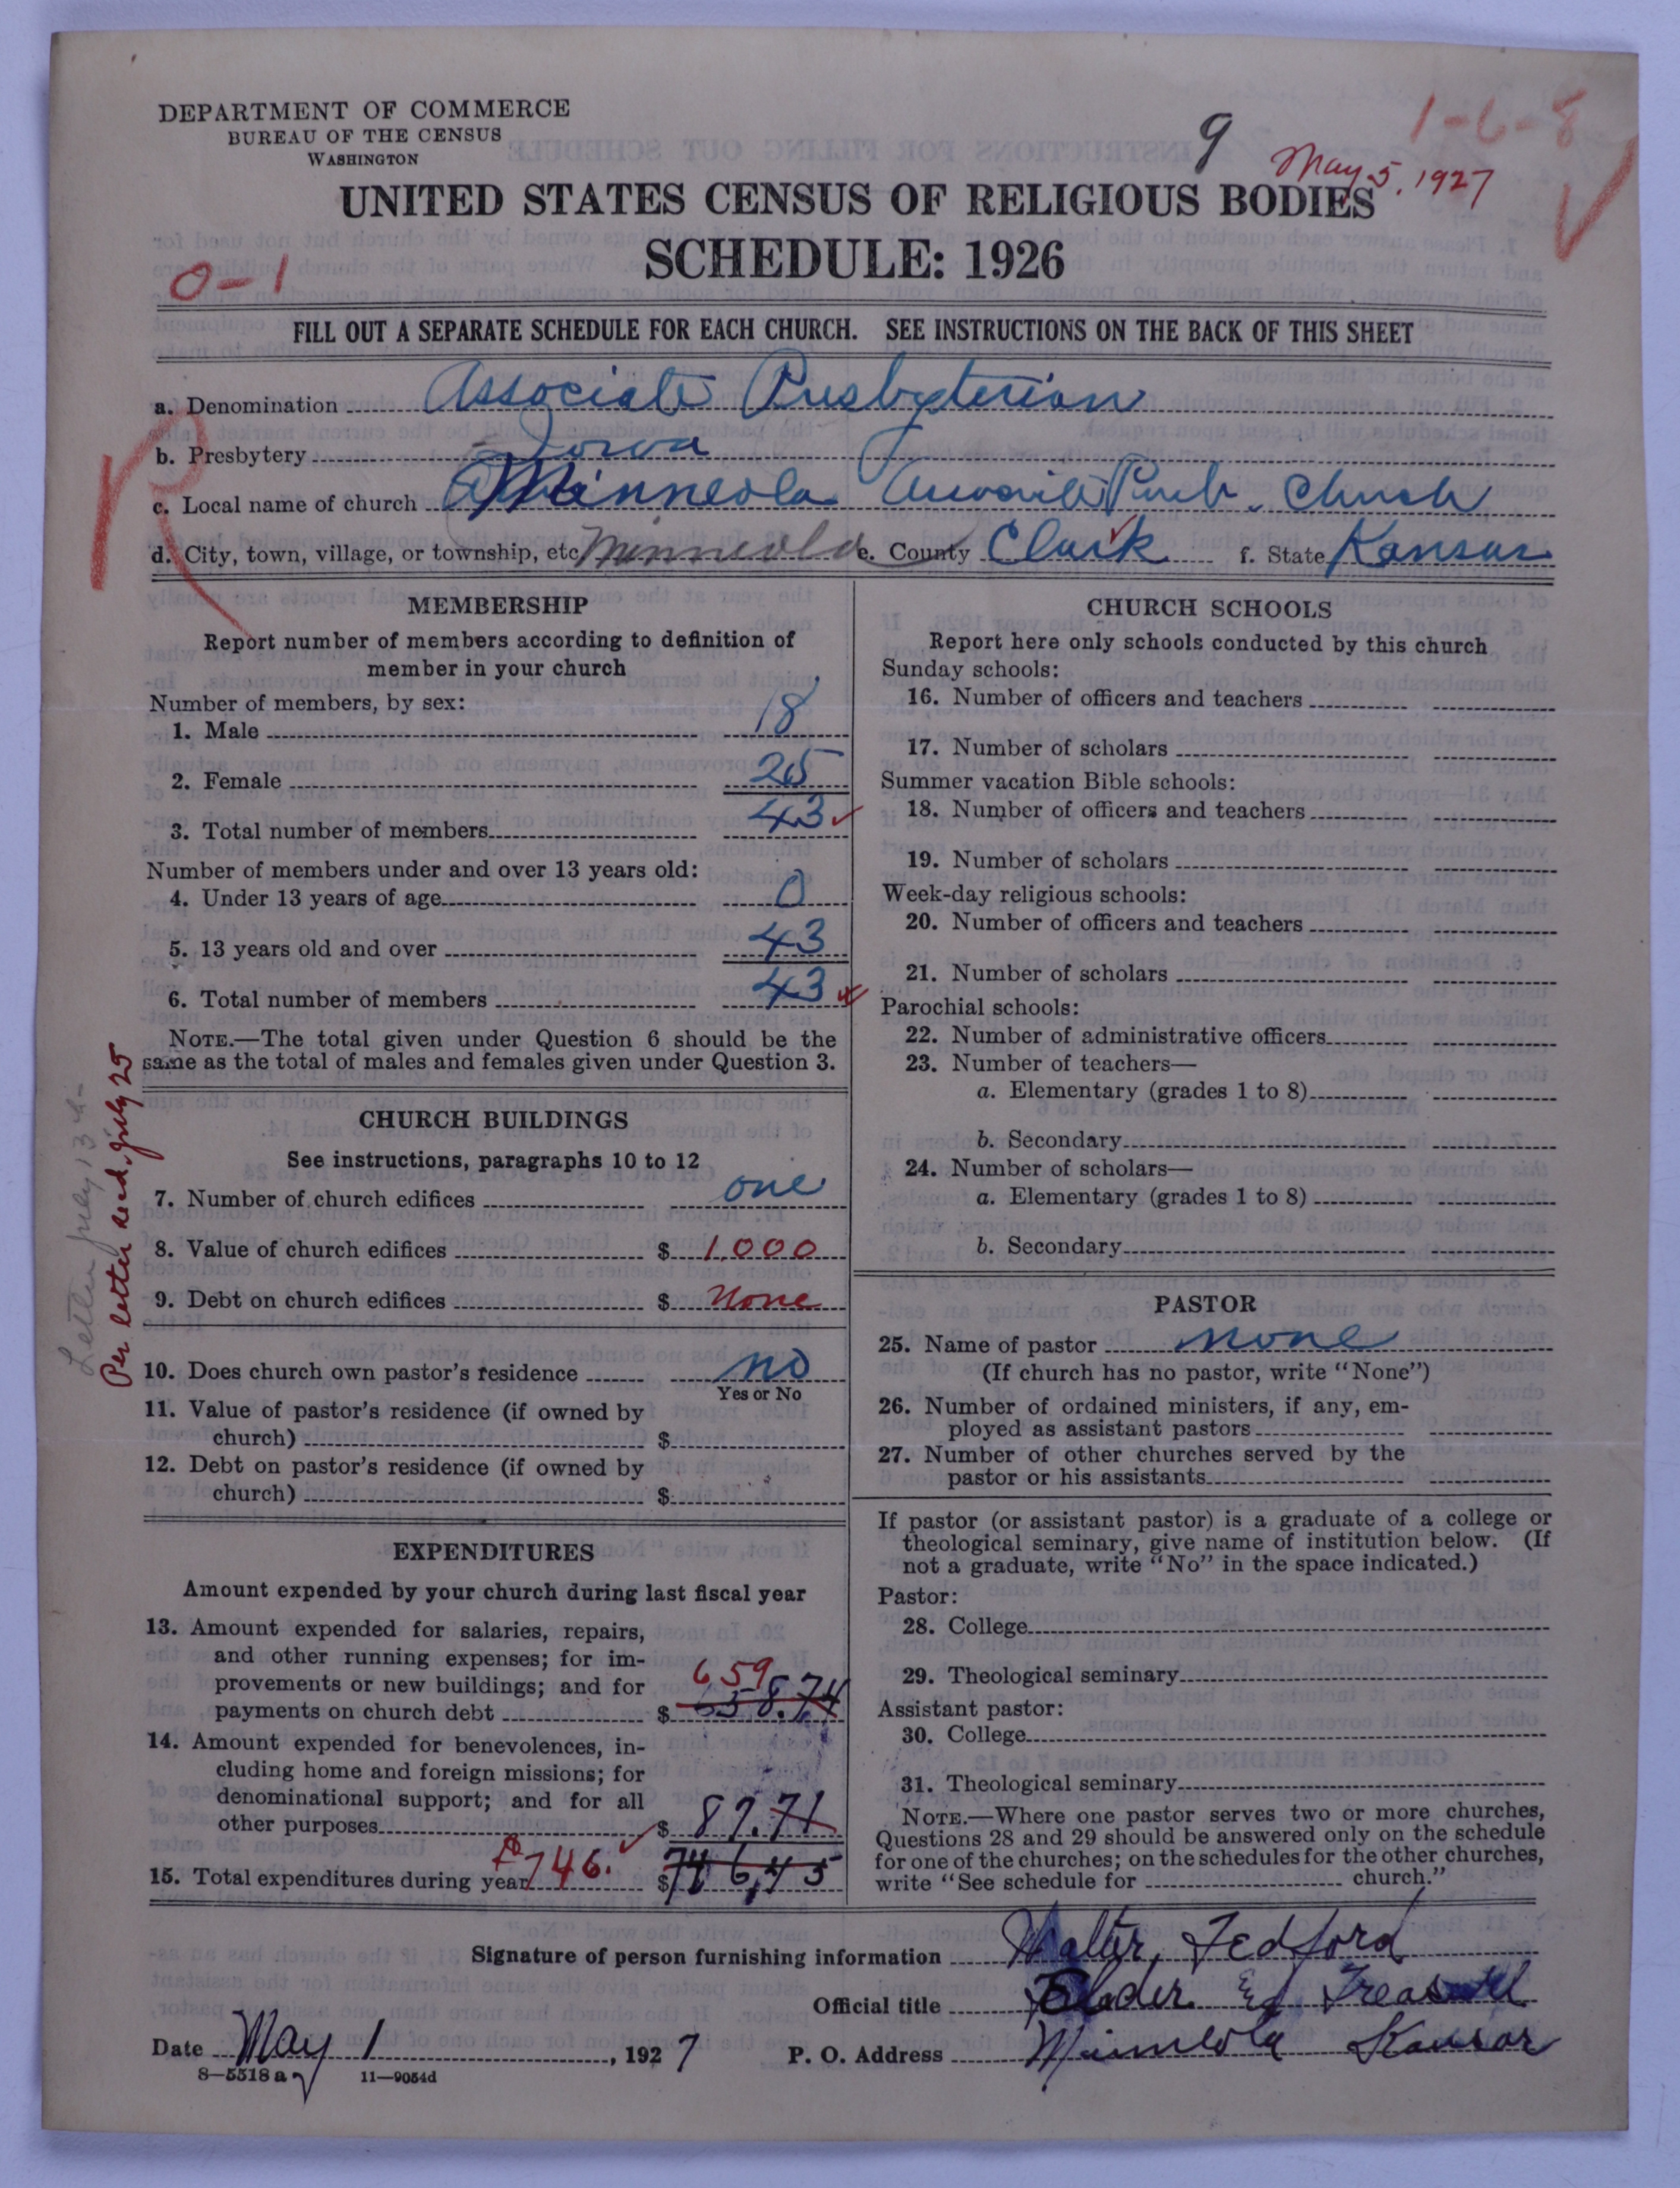 DEPARTMENT OF COMMERCE
BUREAU OF THE CENSUS
WASHINGTON
9
1-6-8
May 5, 1927
UNITED STATES CENSUS OF RELIGIOUS BODIES
SCHEDULE: 1926
0-1
FILL OUT A SEPARATE SCHEDULE FOR EACH CHURCH. SEE INSTRUCTIONS ON THE BACK OF THIS SHEET
R
a. Denomination Associate Presbyterian
b. Presbytery Iowa
c. Local name of church Minneola Church
d. City, town, village, or township, etc. Minneola e. County Clark f. State Kansas
MEMBERSHIP
Report number of members according to definition of
member in your church
Number of members, by sex:
1. Male 18
2. Female 25
3. Total number of members 43
Number of members under and over 13 years old:
4. Under 13 years of age 0
5. 13 years old and over 43
6. Total number of members 43
NOTE.—The total given under Question 6 should be the
same as the total of males and females given under Question 3.
Letter July 13th
Per letter rec'd. July 25
CHURCH BUILDINGS
See instructions, paragraphs 10 to 12
7. Number of church edifices one
8. Value of church edifices $ 1,000
9. Debt on church edifices $ none
10. Does church own pastor's residence no
Yes or No
11. Value of pastor's residence (if owned by
church) $
12. Debt on pastor's residence (if owned by
church) $
EXPENDITURES
Amount expended by your church during last fiscal year
13. Amount expended for salaries, repairs,
and other running expenses; for im-
provements or new buildings; and for
659
payments on church debt $ 658.74
14. Amount expended for benevolences, in-
cluding home and foreign missions; for
denominational support; and for all
other purposes $ 87.71
15. Total expenditures during year $746. $ 746,45
CHURCH SCHOOLS
Report here only schools conducted by this church
Sunday schools:
16. Number of officers and teachers
17. Number of scholars
Summer vacation Bible schools:
18. Number of officers and teachers
19. Number of scholars
Week-day religious schools:
20. Number of officers and teachers
21. Number of scholars
Parochial schools:
22. Number of administrative officers
23. Number of teachers—
a. Elementary (grades 1 to 8)
b. Secondary
24. Number of scholars—
a. Elementary (grades 1 to 8)
b. Secondary
PASTOR
25. Name of pastor none
(If church has no pastor, write "None")
26. Number of ordained ministers, if any, em-
ployed as assistant pastors
27. Number of other churches served by the
pastor or his assistants
If pastor (or assistant pastor) is a graduate of a college or
theological seminary, give name of institution below. (If
not a graduate, write "No" in the space indicated.)
Pastor:
28. College
29. Theological seminary
Assistant pastor:
30. College
31. Theological seminary
NOTE.—Where one pastor serves two or more churches,
Questions 28 and 29 should be answered only on the schedule
for one of the churches; on the schedules for the other churches,
write "See schedule for church."
Signature of person furnishing information Walter Tedford
Official title Elder
Date May 1, 1927 P. O. Address Minneola Kansas
8—5518 a 11—9054d